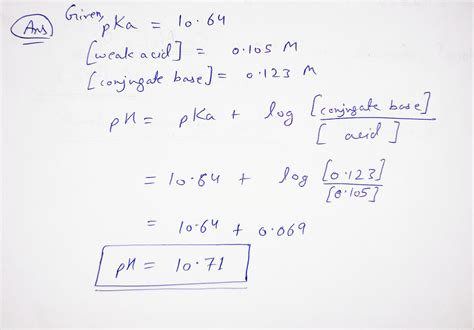 Ans Given, pKa = 10.64
[weak acid] = 0.105 M
[conjugate base] = 0.123 M
pH = pKa + log [conjugate base]/[acid]
= 10.64 + log [0.123]/[0.105]
= 10.64 + 0.069
pH = 10.71